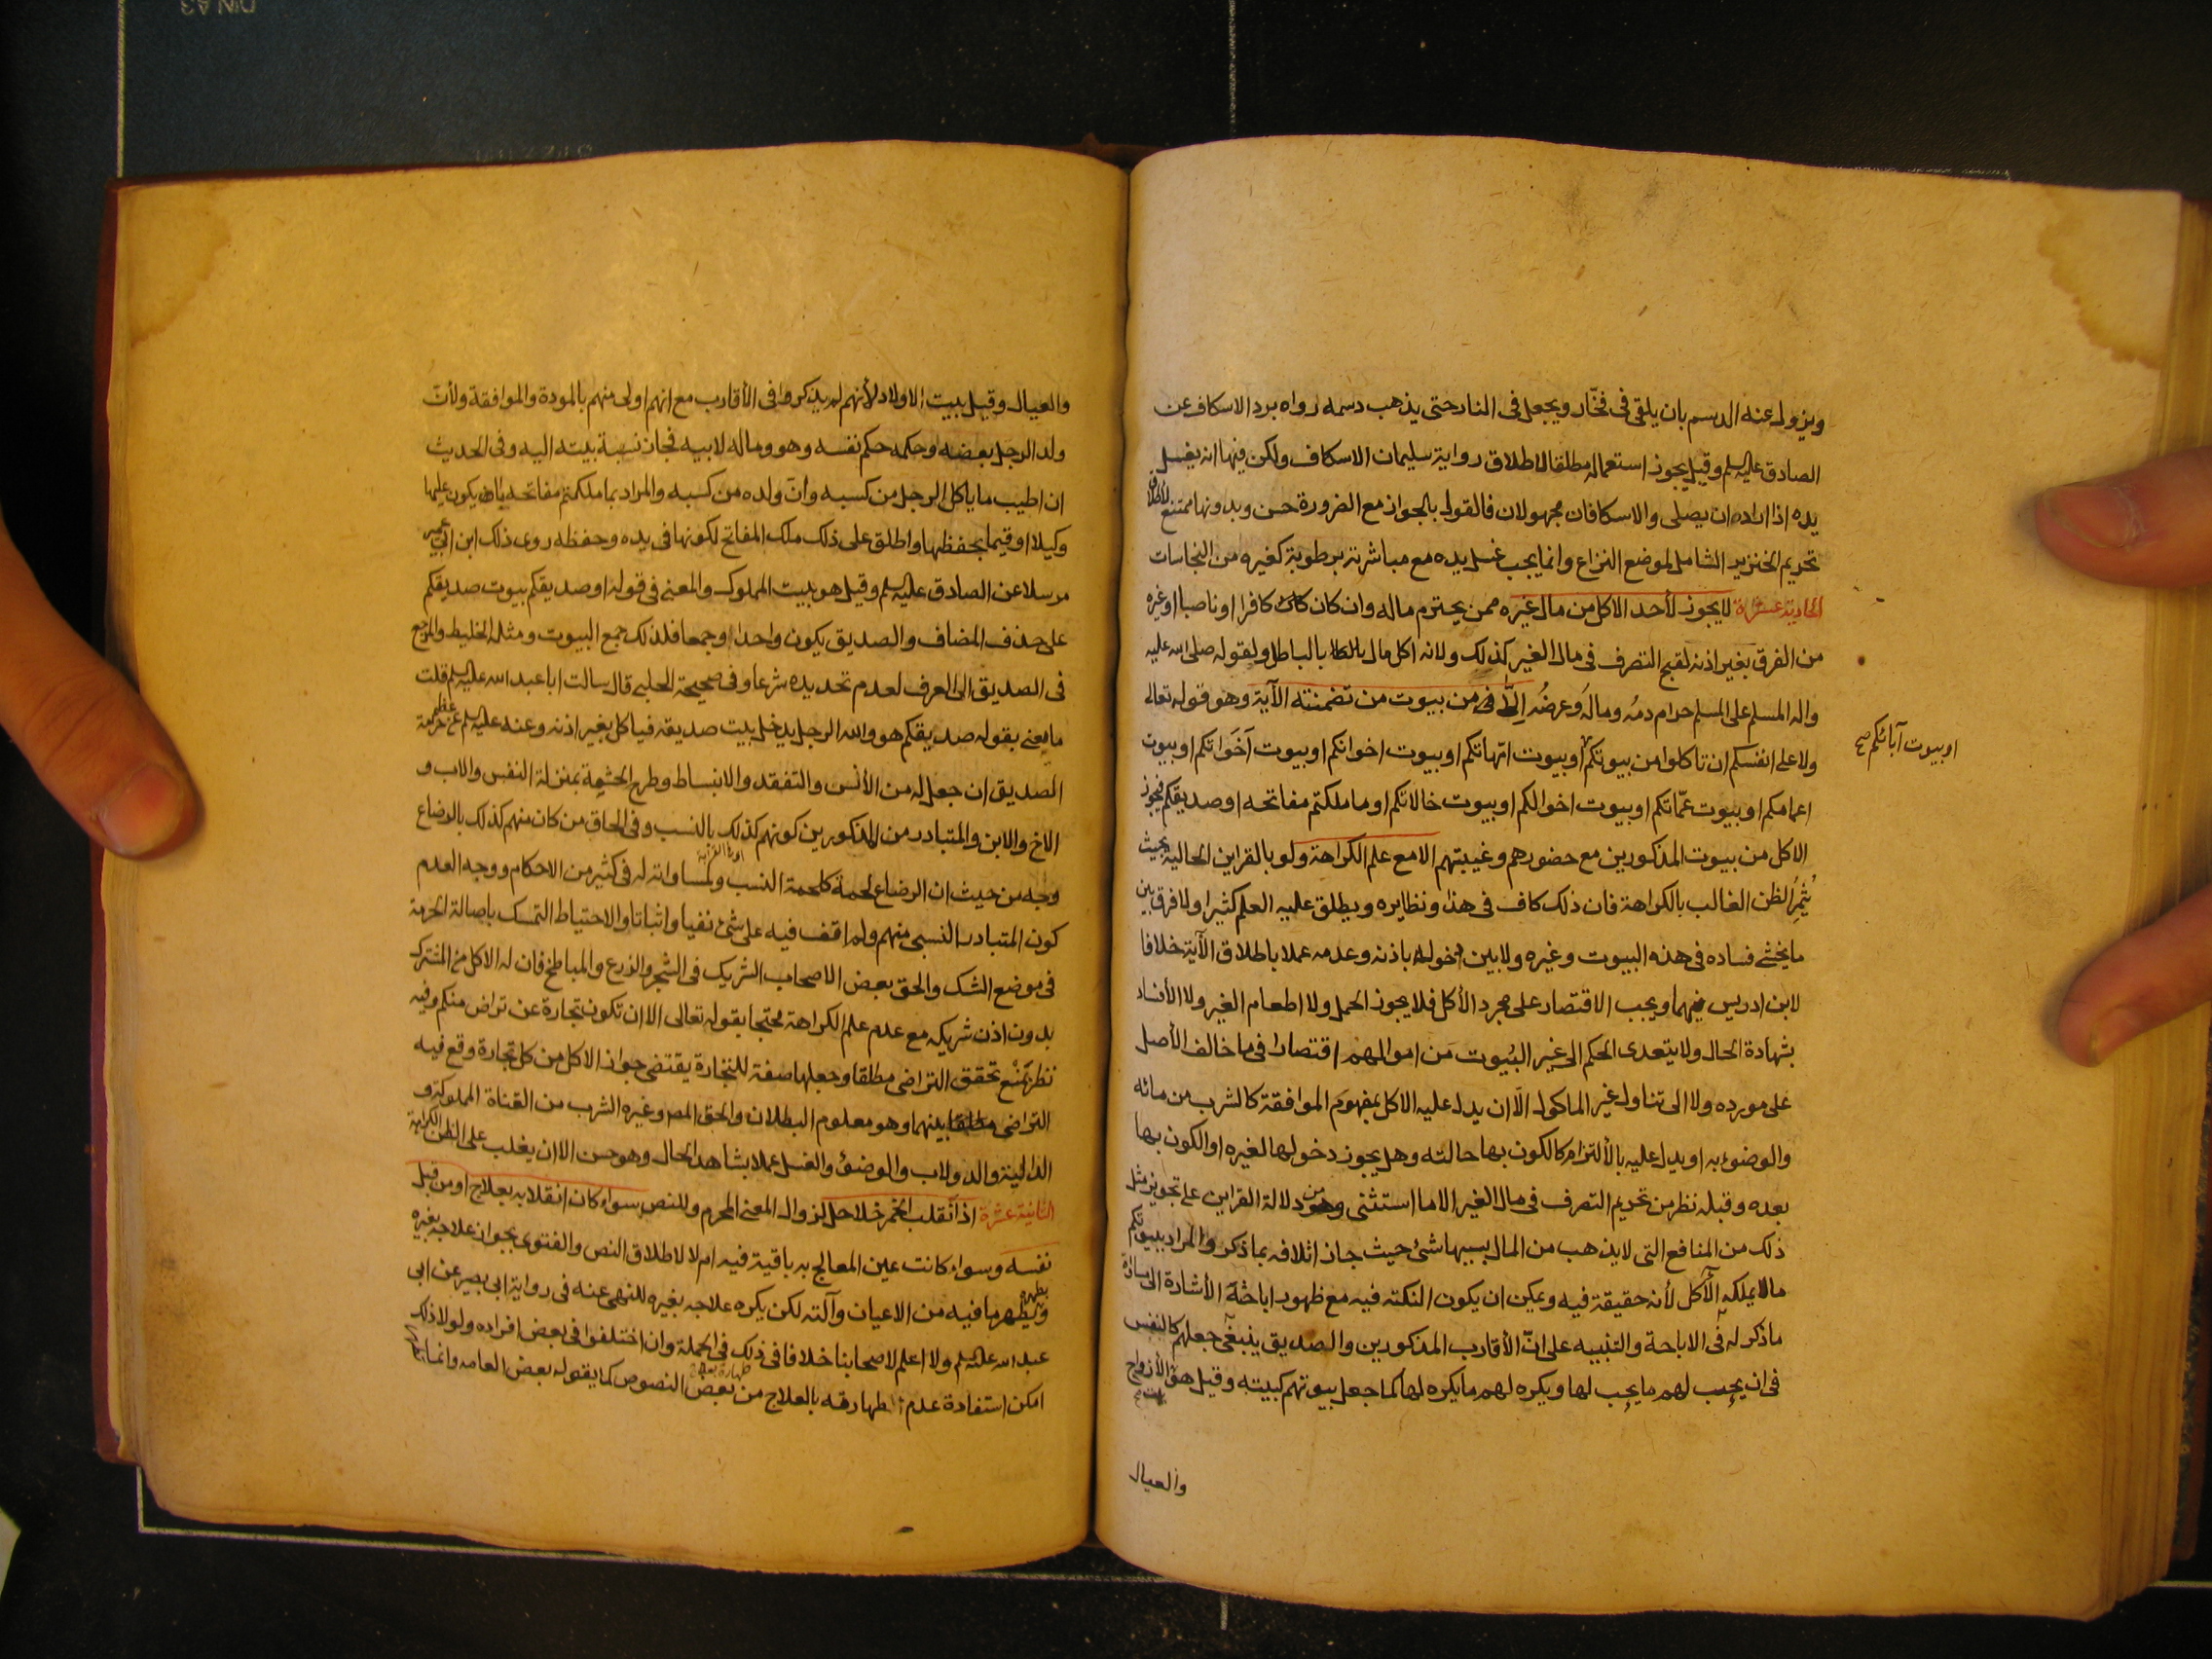 ويزول عنه الدسم بان يلقى فى فخّار ويجعل فى النار حتى يذهب دسمه رواه برد الاسكاف عن
الصادق عليه السلم وقيل يجوز استعماله مطلقا لاطلاق رواية سليمان الاسكاف ولكن فيها انه يغسل
يده اذا اراد ان يصلى والاسكافان مجهولان فالقول بالجواز مع الضرورة حسن وبدونها ممتنع لاطلاق
تحريم الخنزير الشامل لموضع النزاع وانما يجب غسل يده مع مباشرته برطوبة كغيره من النجاسات
الحادية عشرة لا يجوز لأحد الاكل من مال غيره ممن يحترم ماله وان كان كافرا او ناصبا او غيره
من الفرق بغير اذنه لقبح التصرف فى مال الغير كذلك ولانه اكل مال بالباطل ولقوله صلى الله عليه
واله المسلم على المسلم حرام دمُه وماله وعرضُه إلّا فى من بيوت من تضمنته الآية وهو قوله تعالى
ولا على انفسكم ان تاكلوا من بيوتكم او بيوت امّهاتكم او بيوت اخوانكم او بيوت أخَواتكم او بيوت
او بيوت آبائكم صح
اعمامكم او بيوت عمّاتكم او بيوت اخوالكم او بيوت خالاتكم او ما ملكتم مفاتحه او صديقكم فيجوز
الاكل من بيوت المذكورين مع حضورهم وغيبتهم الا مع علم الكراهة ولو بالقراين الحالية بحيث
يُثمِرُ الظن الغالب بالكراهة فان ذلك كاف فى هذا ونظايره ويطلق عليه العلم كثيرا ولا فرق بين
ما يخشى فساده فى هذه البيوت وغيره ولا بين دخوله باذنه وعدمه عملا باطلاق الآية خلافا
لابن ادريس فيهما ويجب الاقتصار على مجرد الأكل فلا يجوز الحمل ولا اطعام الغير ولا الأفساد
بشهادة الحال ولا يتعدى الحكم الى غير البُيوت من اموالهم اقتصارا فى ما خالف الأصل
على مورده ولا الى تناول غير الماكول الّا ان يدل عليه الاكل بمفهوم الموافقة كالشرب من مائه
والوضوء به او يدل عليه بالألتزام كالكون بها حالته وهل يجوز دخولها لغيره او الكون بها
بعده وقبله نظر من تحريم التصرف فى مال الغير الا ما استثنى ومن دلالة القراين على تجويز مثل
ذلك من المنافع التى لا يذهب من المال بسببها شئ حيث جاز اتلافه بما ذكر والمراد ببيوتكم
ما لا يملكه الأكل لأنه حقيقة فيه ويمكن ان يكون النكتة فيه مع ظهور اباحته الأشارة الى مساواة
ما ذكر له فى الاباحة والتنبيه على انّ الأقارب المذكورين والصديق ينبغى جعلهم كالنفس
فى ان يحب لهم ما يحب لها ويكره لهم ما يكره لها كما جعل بيوتهم كبيته وقيل هو الأزواج
والعيال
والعيال وقيل بيت الاولاد لأنهم لم يذكروا فى الأقارب مع انهم اولى منهم بالمودة والموافقة ولأن
ولد الرجل بعضه وحكمه حكم نفسه وهو وماله لابيه فجاز نسبة بيته اليه وفى الحديث
ان اطيب ما ياكل الرجل من كسبه وانّ ولده من كسبه والمراد بما ملكتم مفاتحه يكون عليها
وكيلا او قيما يحفظها واطلق على ذلك ملك المفاتح لكونها فى يده وحفظه روى ذلك ابن ابى عمير
مرسلا عن الصادق عليه السلم وقيل هو بيت المملوك والمعنى فى قوله او صديقكم بيوت صديقكم
على حذف المضاف والصديق يكون واحدا وجمعا فلذلك جمع البيوت ومثله الخليط والمرجع
فى الصديق الى العرف لعدم تحديده شرعا وفى صحيحة الحلبى قال سالت ابا عبد الله عليه السلم قلت
ما يعنى بقوله صديقكم هو والله الرجل يدخل بيت صديقه فياكل بغير اذنه وعنه عليه السلم من عظم حرمة
الصديق ان جعل له من الأنس والتفقد والانبساط وطرح الحشمة بمنزلة النفس والاب و
الاخ والابن والمتبادر من المذكورين كونهم كذلك بالنسب وفى الحاق من كان منهم كذلك بالرضاع
وجه من حيث ان الرضاع لحمة كلحمة النسب ولمساواته له فى كثير من الاحكام ووجه العدم
كون المتبادر النسبى منهم ولم اقف فيه على شئ نفيا واثباتا والاحتياط التمسك باصالة الحرمة
فى موضع الشك والحق بعض الاصحاب الشريك فى الشجر والزرع والمباطخ فان له الاكل من المشترك
بدون اذن شريكه مع عدم علم الكراهة محتجا بقوله تعالى الا ان تكون تجارة عن تراض منكم وفيه
نظر بمنْع تحقق التراضى مطلقا وجعلها صفة للتجارة يقتضى جواز الاكل من كل تجارة وقع فيه
التراضى بينهما وهو معلوم البطلان والحق المص وغيره الشرب من القناة المملوكة و
الدالية والدولاب والوضوء والغسل عملا بشاهد الحال وهو حسن الا ان يغلب على الظن الكراهة
الثانية عشرة اذا انقلب الخمر خلا حل لزوال المعنى المحرم وللنص سواء كان انقلابه بعلاج او من قبل
نفسه وسواء كانت عين المعالج به باقية فيه ام لا لاطلاق النص والفتوى بجواز علاجه بغيره
وبطهره يطهر ما فيه من الاعيان وآلته لكن يكره علاجه بغيره للنهى عنه فى رواية ابى بصير عن ابى
عبد الله عليه السلم ولا اعلم لاصحابنا خلافا فى ذلك فى الجملة وان اختلفوا فى بعض افراده ولولا ذلك
امكن استفادة عدم طهارته بالعلاج من بعض النصوص كما يقوله بعض العامه وانما